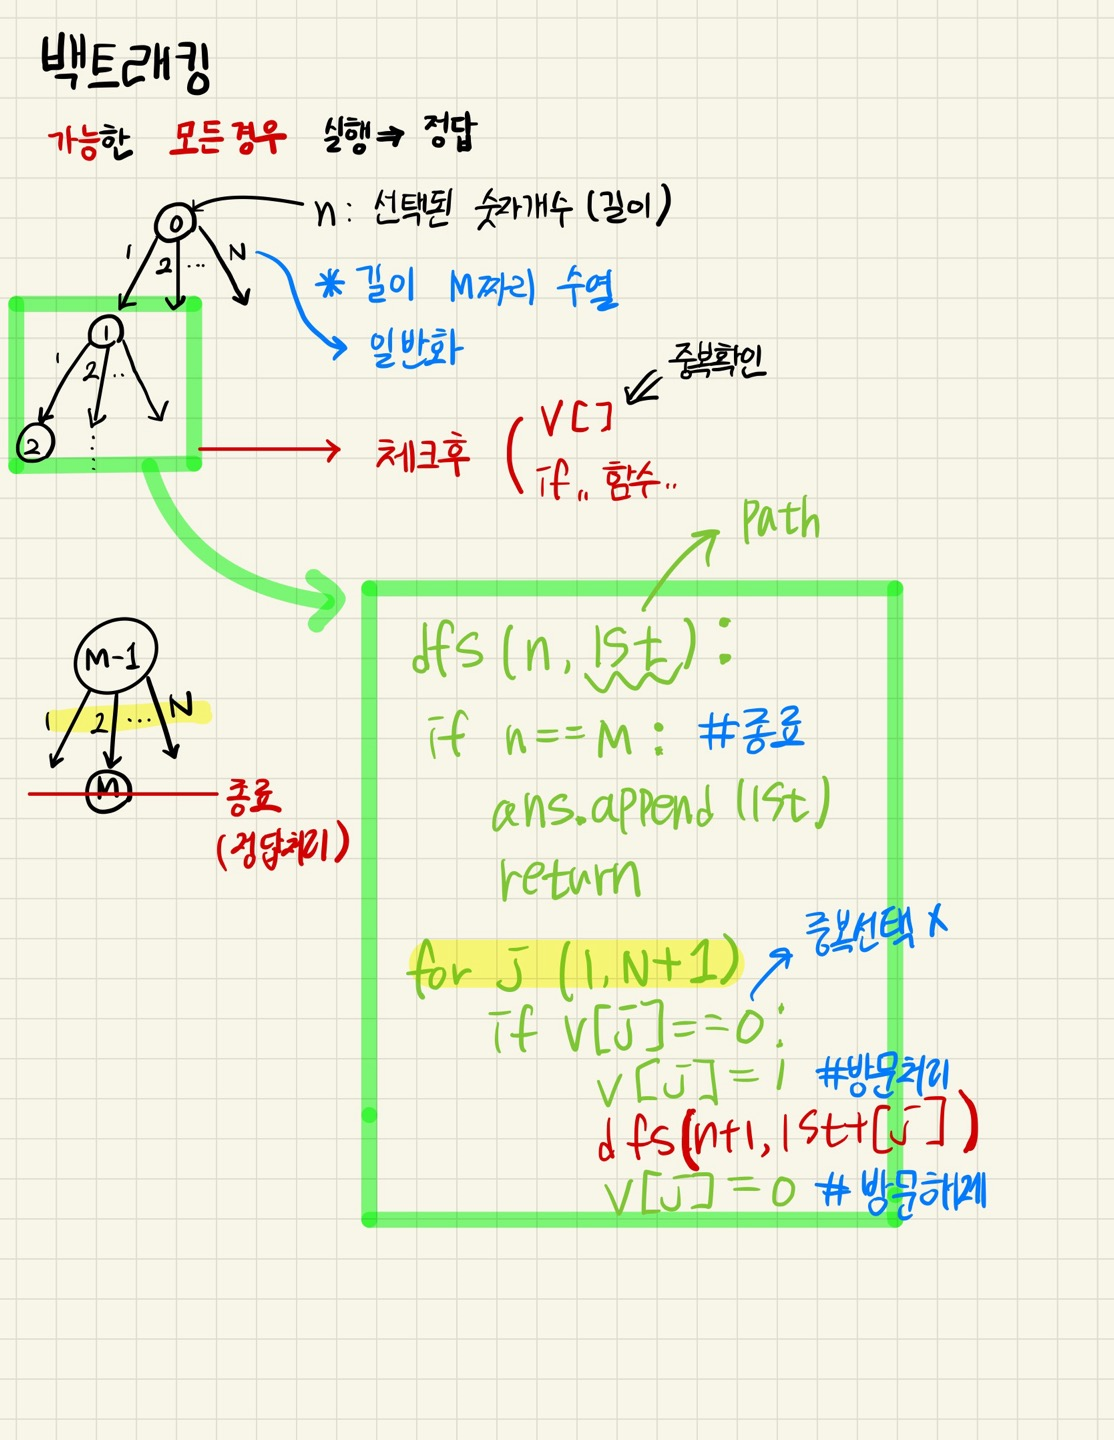 백트래킹
가능한 모든경우 실행⇒ 정답
0
n: 선택된 숫자개수 (길이)
1 2 ... N
* 길이 M짜리 수열
일반화
1
1 2 ..
2
중복확인
체크후 ( V[]
if .. 함수..
path
dfs(n, lst):
if n==M: #종료
ans.append(lst)
return
for j (1, N+1)
중복선택 X
if v[j]==0:
v[j]=1 #방문처리
dfs(n+1, lst+[j])
v[j]=0 # 방문해제
M-1
1 2 ... N
M
종료
(정답처리)